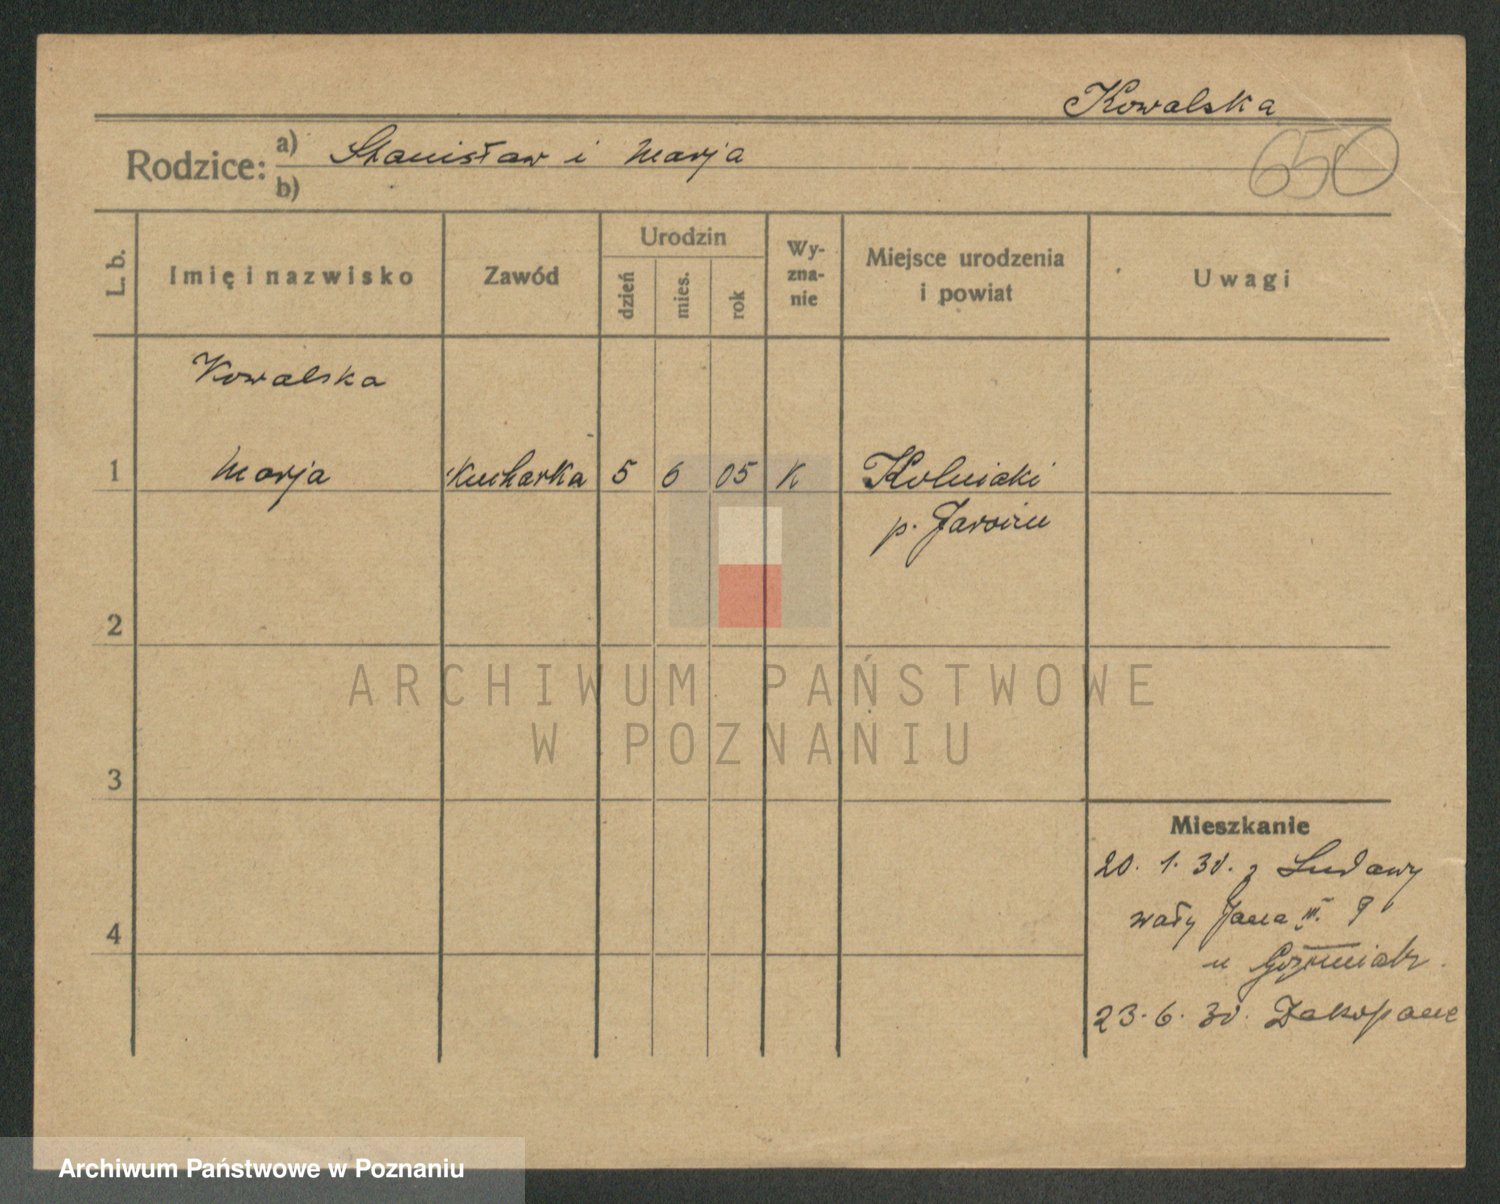 Kowalska
650
Rodzice: a) Stanisław i Marja
b)
L. b.
Imię i nazwisko
Zawód
Urodzin
dzień
mies.
rok
Wy-
zna-
nie
Miejsce urodzenia
i powiat
Uwagi
Kowalska
1 Marja Kucharka 5 6 05 K Kolniaki
p. Jarocin
2
3
4
ARCHIWUM PAŃSTWOWE
W POZNANIU
Mieszkanie
20. 1. 30. z
wały Jana III. 9
u
23. 6. 30. Zakopane
Archiwum Państwowe w Poznaniu